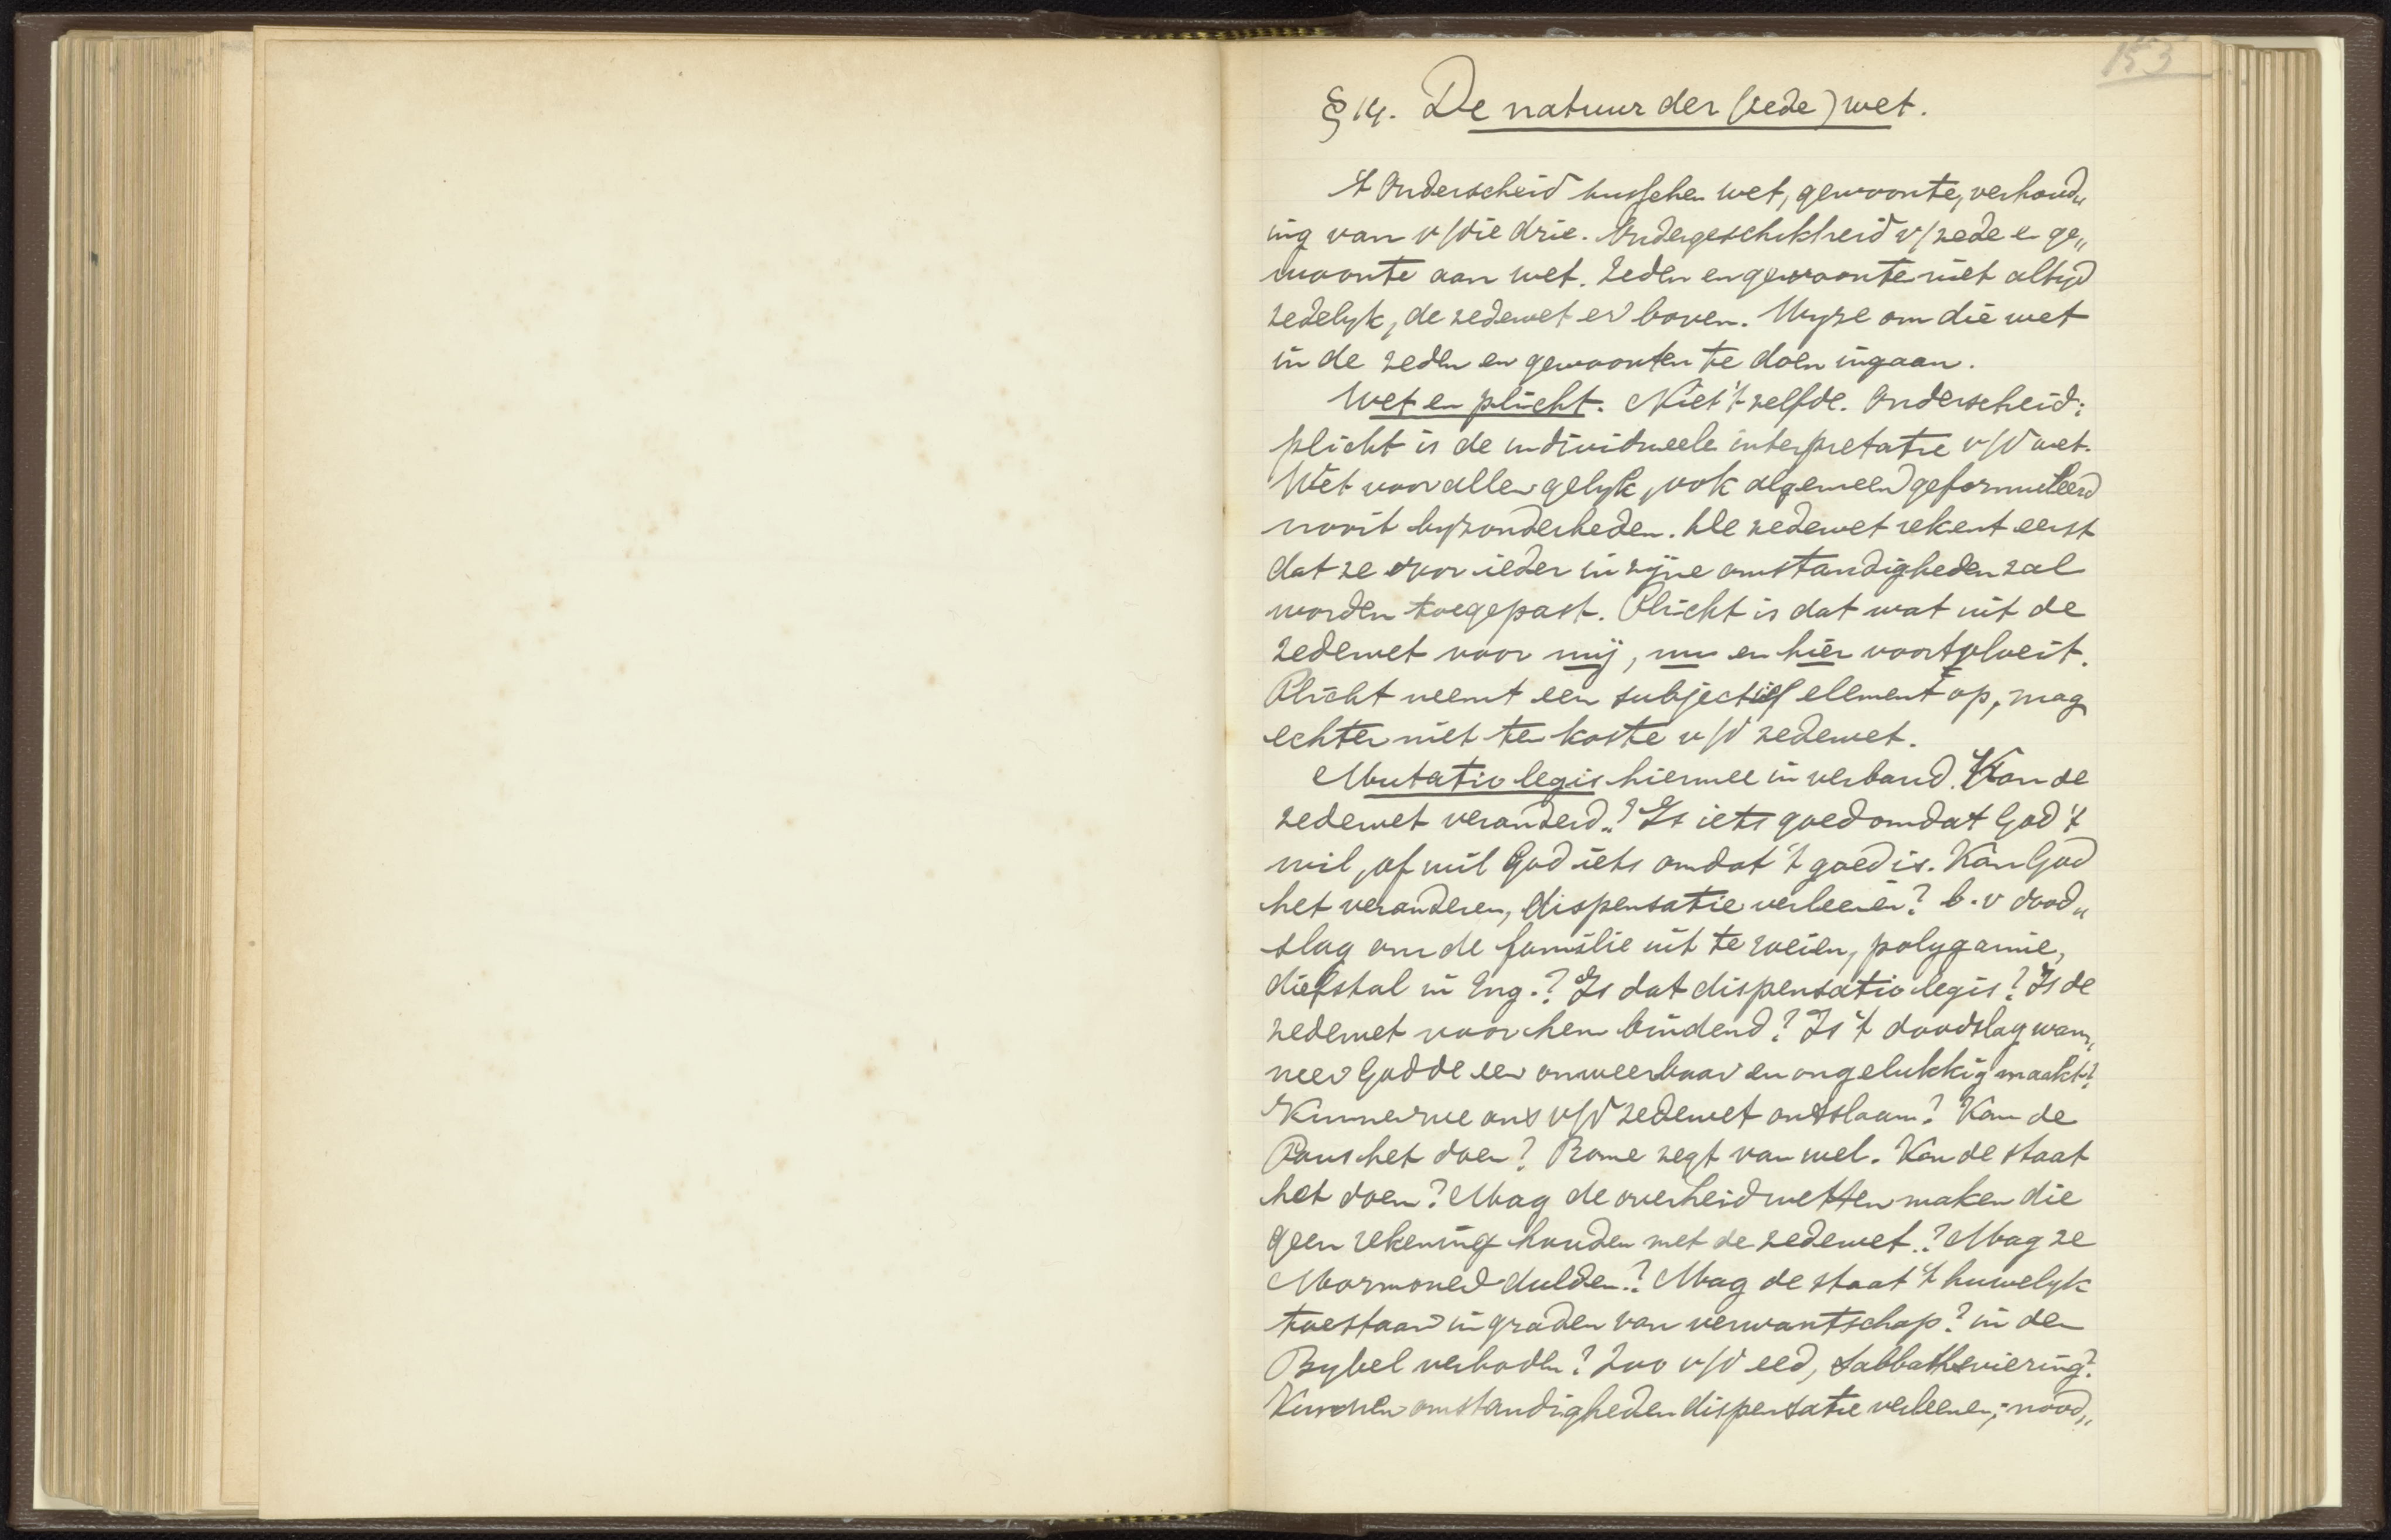 153
§ 14. De natuur der (zede) wet.
't Onderscheid tusschen wet, gewoonte, verhoud„
ing van v/die drie. Ondergeschiktheid v/zede en ge„
woonte aan wet. Zeden en gewoonte niet altyd
zedelyk, de zedewet er boven. Wyze om die wet
in de zeden en gewoonten te doen ingaan.
Wet en plicht. Niet 't zelfde. Onderscheid:
plicht is de individueele interpretatie v/d wet.
Wet voor allen gelyk, ook algemeen geformuleerd
nooit byzonderheden. De zedewet rekent eerst
dat ze voor ieder in zijne omstandigheden zal
worden toegepast. Plicht is dat wat uit de
zedewet voor mij, nu en hier voortvloeit.
Plicht neemt een subjectief element op, mag
echter niet ten koste v/d zedewet.
Mutatio legis hiermee in verband. Kan de
zedewet veranderd„? Is iets goed omdat God 't
wil, of wil God iets omdat 't goed is. Kan God
het veranderen, dispensatie verleenen? b.v dood„
slag om de familie uit te roeien, polygamie,
diefstal in Eng.? Is dat dispensatio legis? Is de
zedewet voor hem bindend? Is 't doodslag wan„
neer God de een onweerbaar en ongelukkig maakt?
Kunnen we ons v/d zedewet ontslaan? Kan de
Paus het doen? Rome zegt van wel. Kan de staat
het doen? Mag de overheid wetten maken die
geen rekening houden met de zedewet.? Mag ze
Mormonen dulden? Mag de staat 't huwelyk
toestaan in graden van verwantschap? in den
Bybel verboden? Zoo v/d eed, Sabbathsviering?
Kunnen omstandigheden dispensatie verleenen; nood„